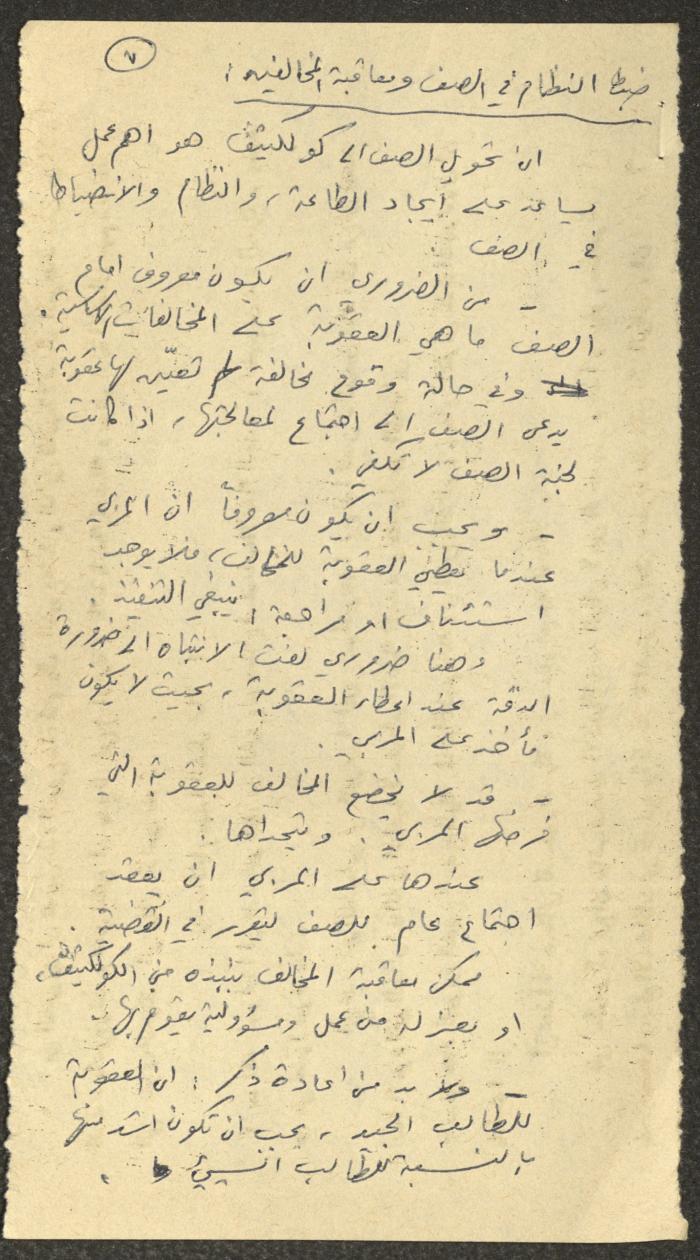 ٧
ضبط النظام في الصف ومعاقبة المخالفين :
ان تحويل الصف الى كولكتيڤ هو اهم عمل
يساعد على ايجاد الطاعة ، والنظام والانضباط
في الصف
- من الضروري ان يكون معروف امام
الصف ما هي العقوبة على المخالفات الاساسية .
وفي حالة وقوع مخالفة لم تعيّن لها عقوبة
يدعى الصف الى اجتماع لمعالجتها ، اذا كانت
لجنة الصف لا تكفي .
- ويجب ان يكون معروفاً ان المربي
عندما يعطي العقوبة للمخالف ، فلا يوجد
استئناف او مراجعة ، ينبغي التنفيذ .
وهنا ضروري لفت الانتباه الى ضرورة
الدقة عند اعطاء العقوبة ، بحيث لا يكون
مأخذ على المربي .
- قد لا يخضع المخالف للعقوبة التي
فرضها المربي . ويتحداها .
عندها على المربي ان يعقد
اجتماع عام للصف ليقرر في القضية .
ممكن معاقبة المخالف بنبذه من الكولكتيڤ ،
او بعزله من عمل ومسؤولية يقوم بها .
- ولا بد من اعادة ذكر : ان العقوبة
للطالب الجيد ، يجب ان تكون اشد منها
بالنسبة للطالب السيئ .